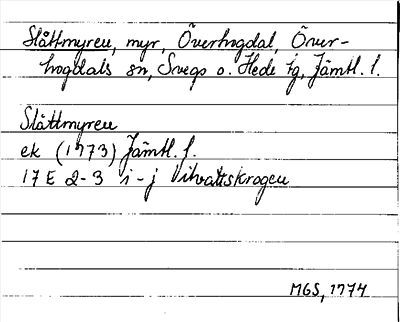 Slåttmyren, myr, Överhogdal, Över-
hogdals sn, Svegs o. Hede tg, Jämtl. l.
Slåttmyren
ek (1973) Jämtl. l.
17 E 2-3 i-j Vitvattskrogen
MGS, 1974